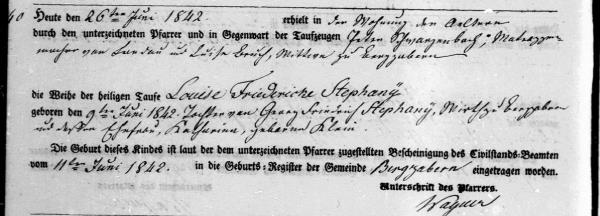 40 Heute den 26ten Juni 1842 erhielt in der Wohnung der Aeltern
durch den unterzeichneten Pfarrer und in Gegenwart der Taufzeugen Peter Schwarzenbach,
macher von Landau und Luise Bruch, Wittwe zu Bergzabern
die Weihe der heiligen Taufe Louise Friederiche Stephany
geboren den 9ten Juni 1842. Tochter von Georg Friedrich Stephany, Wirth zu Bergzabern
und dessen Ehefrau, Katharina, geborne Klein.
Die Geburt dieses Kindes ist laut der dem unterzeichneten Pfarrer zugestellten Bescheinigung des Civilstands-Beamten
vom 11ten Juni 1842. in die Geburts-Register der Gemeinde Bergzabern eingetragen worden.
Unterschrift des Pfarrers.
Wagner